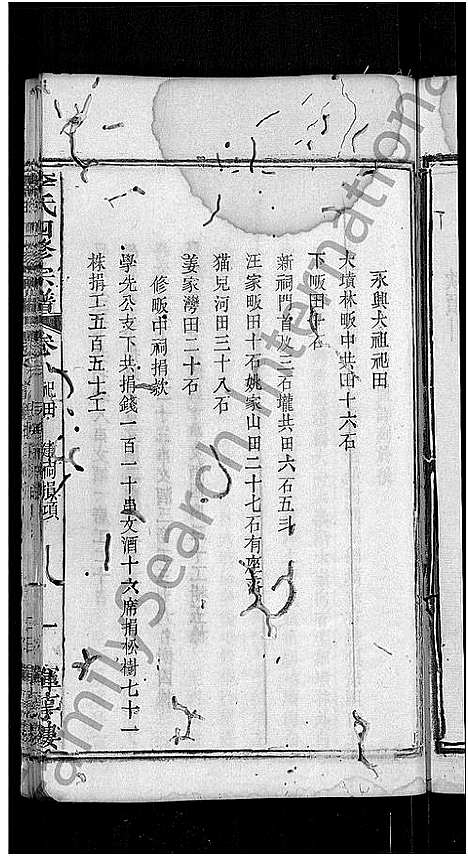 永興大祖祀田
大墳林畈中共田十六石
下畈田十石
新祠門首及三石壠共田六石五斗
汪家畈田十石姚家山田二十七石有
猫兒河田三十八石
姜家灣田二十石
修畈中祠捐款
學先公支下共捐錢一百一十串文酒十六席捐松樹七十一
株捐工五百五十工
李氏四修宗譜
卷 祀田 捐項
一
familysearch International